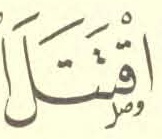 اقْتَتَلَا
وصل